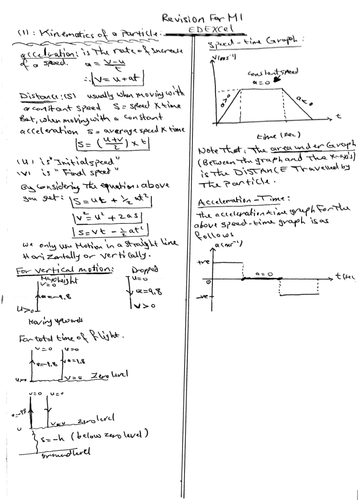 Revision For M1
EDEXCEL
(1): Kinematics of a Particle.
acceleration: is The rate of increase
of a speed. a = v-u/t
∴ v = u + at
Distance:(S) usually when moving with
a constant speed S = speed x time
But, when moving with a constant
acceleration S = average speed x time
S = (u+v/2) x t
(u) is "Initial speed"
(v) is "Final speed"
By considering the equations above
you get: S = ut + 1/2 at²
v² = u² + 2as
S = vt - 1/2 at²
we only use Motion in a straight line
Horizontally or vertically.
For vertical motion:
Max height
v=0
a=-9.8
u>0
Moving upwards
Dropped
u=0
a=9.8
v>0
For total time of flight.
v=0 u=0
a=-9.8 9.8
u>0 v=0 Zero level
v=0 u=0
u zero level
s=-h (below zero level)
ground level
Speed-time Graph:
v(ms⁻¹)
constant speed
a=0
a>0
a<0
time (sec)
Note that, The area under Graph
(Between the graph and the x-axis)
is the DISTANCE Travelled by
The Particle.
Acceleration-Time:
The acceleration-time graph for the
above speed-time graph is as
follows
a(ms⁻²)
+ve
a=0
-ve